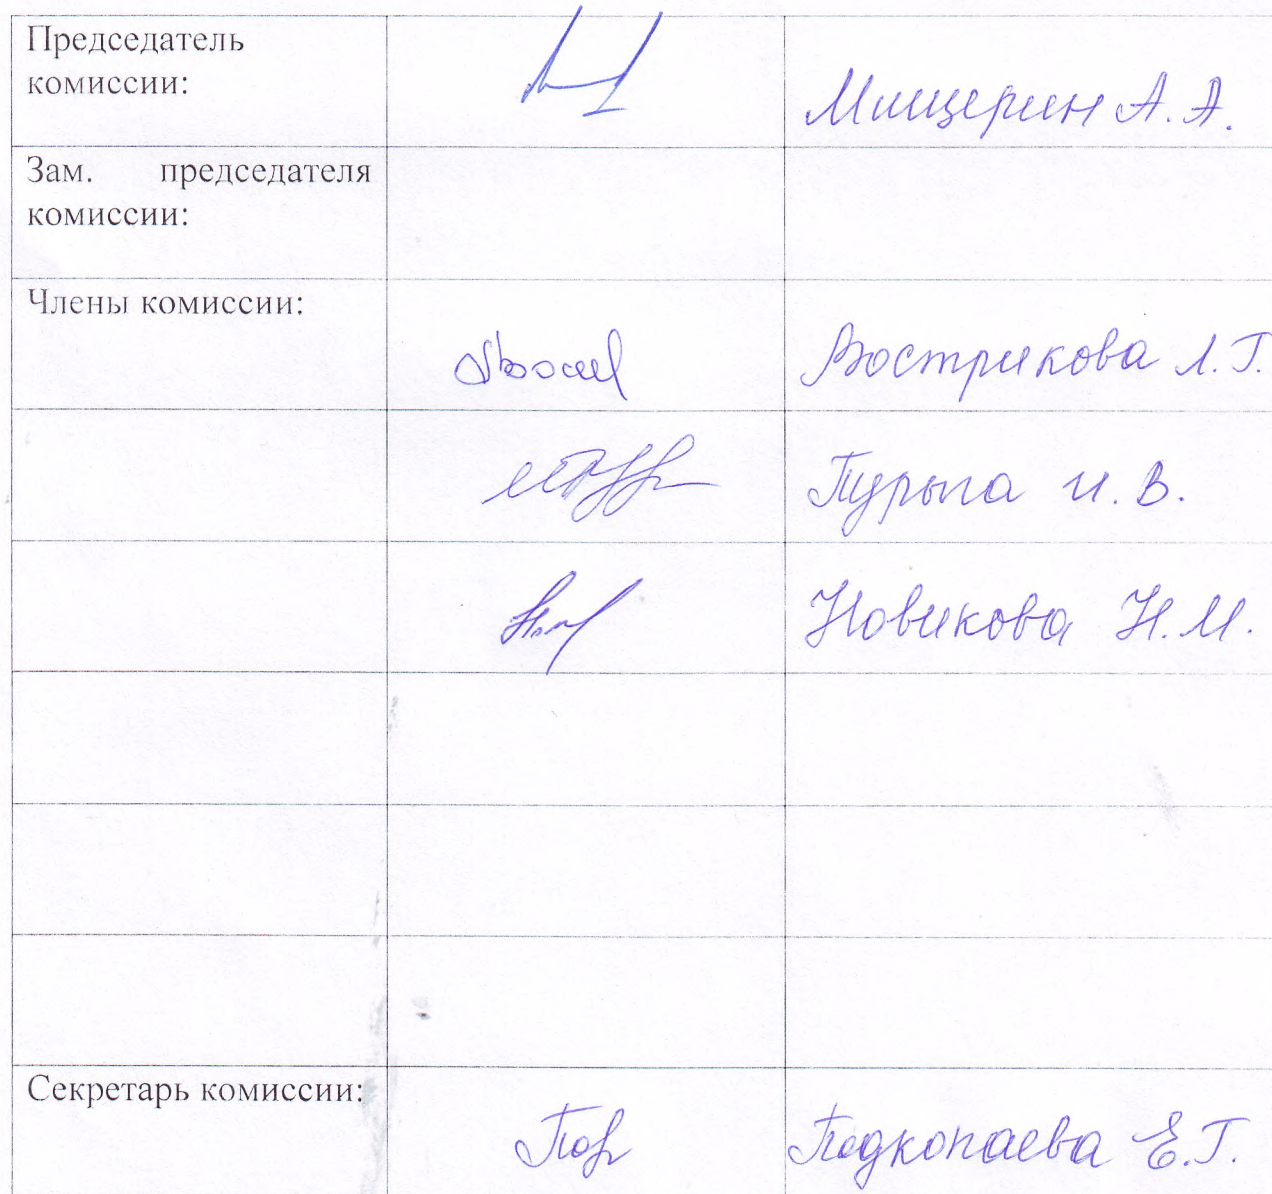 Председатель
комиссии:
Мищерин А. А.
Зам. председателя
комиссии:
Члены комиссии:
Вострикова Л. Г.
Турыга И. В.
Новикова Н. М.
Секретарь комиссии:
Подкопаева Е. Г.